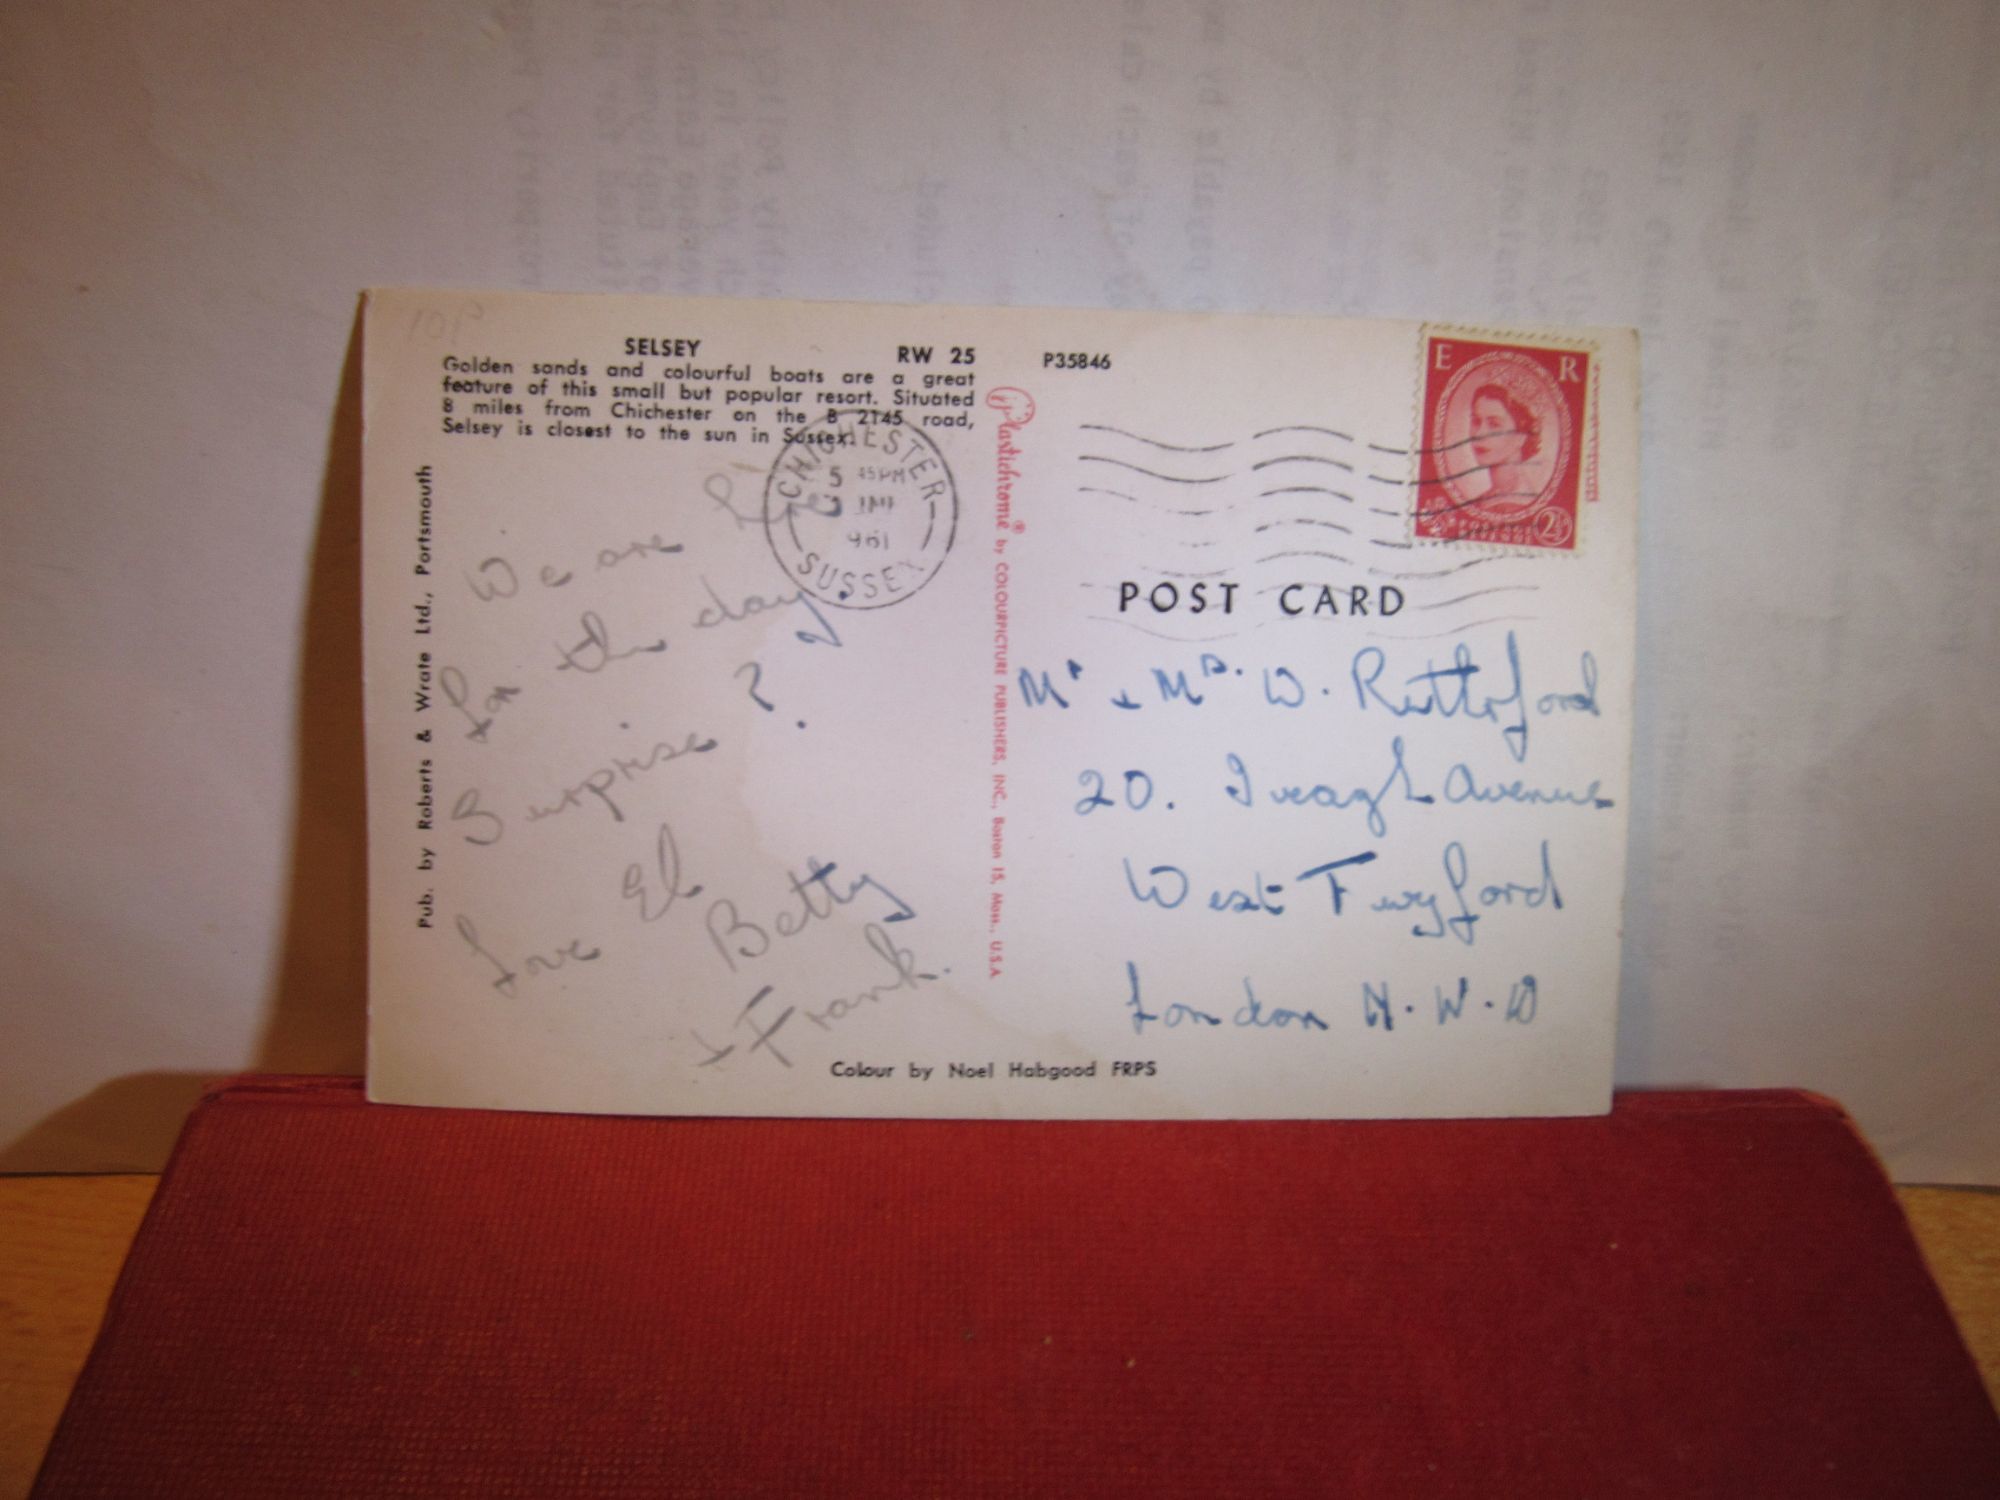 10P
SELSEY RW 25
Golden sands and colourful boats are a great
feature of this small but popular resort. Situated
8 miles from Chichester on the B 2145 road,
Selsey is closest to the sun in Sussex.
Pub. by Roberts & Wrate Ltd., Portsmouth
We are here
for the day.
Surprise ?
Love El
Betty
+ Frank.
CHICHESTER
5 45PM
961
SUSSEX
Plastichrome® by COLOURPICTURE PUBLISHERS, INC., Boston 15, Mass., U.S.A
P35846
E R
2½
POST CARD
Mr + Mrs. W. Rutterford
20. Iveagh Avenue
West Twyford
London N.W.10
Colour by Noel Habgood FRPS